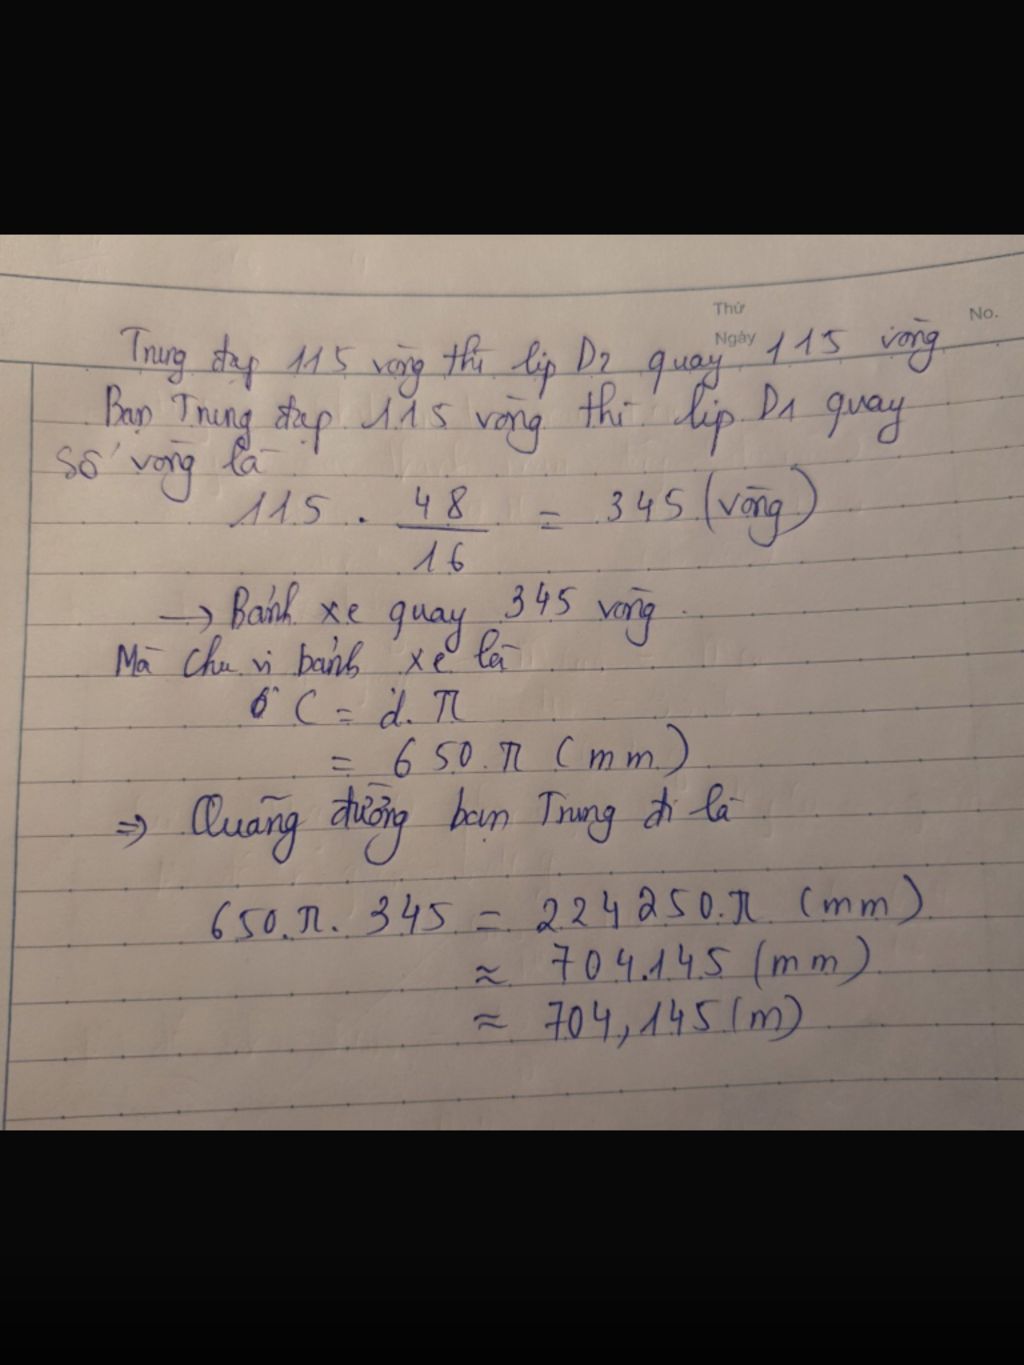 Thứ
Ngày
No.
Trung đạp 115 vòng thì líp D2 quay 115 vòng
Bạn Trung đạp 115 vòng thì líp D1 quay
số vòng là
115 . 48/16 = 345 (vòng)
→ Bánh xe quay 345 vòng.
Mà chu vi bánh xe là
C = d.π
= 650.π (mm)
⇒ Quãng đường bạn Trung đi là
650.π.345 = 224250.π (mm)
≈ 704.145 (mm)
≈ 704,145 (m)